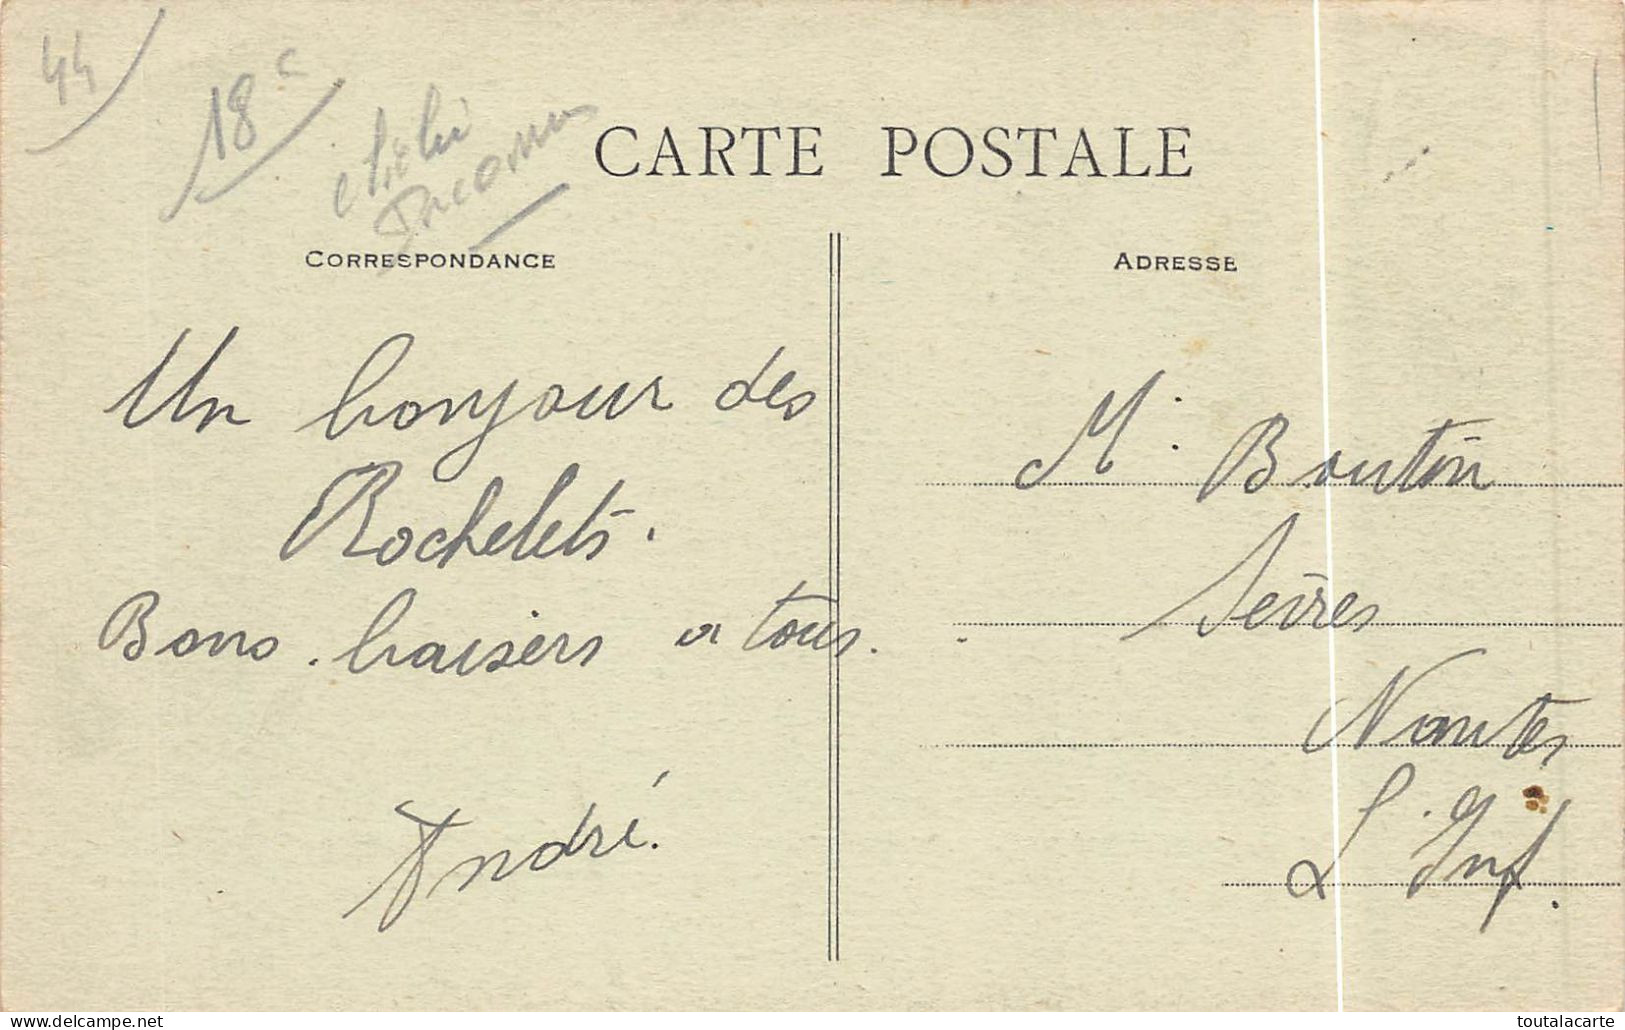 44
18 c
cliché
inconnu
CARTE POSTALE
CORRESPONDANCE
Un bonjour des
Rochelets.
Bons baisers a tous.
André.
ADRESSE
M. Boutin
Sèvres
Nantes
L. Inf.
www.delcampe.net
toutalacarte